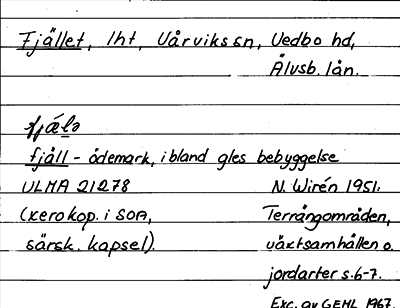 Fjället, lht, Vårvikssn, Vedbo hd,
Älvsb. län.
fjæ̀lə
fjäll - ödemark, ibland gles bebyggelse
ULMA 21278 N. Wirén 1951.
(xerokop. i SOA, Terrängområden,
särsk. kapsel). växtsamhällen o.
jordarter s.6-7.
Exc. av GEHL 1967.